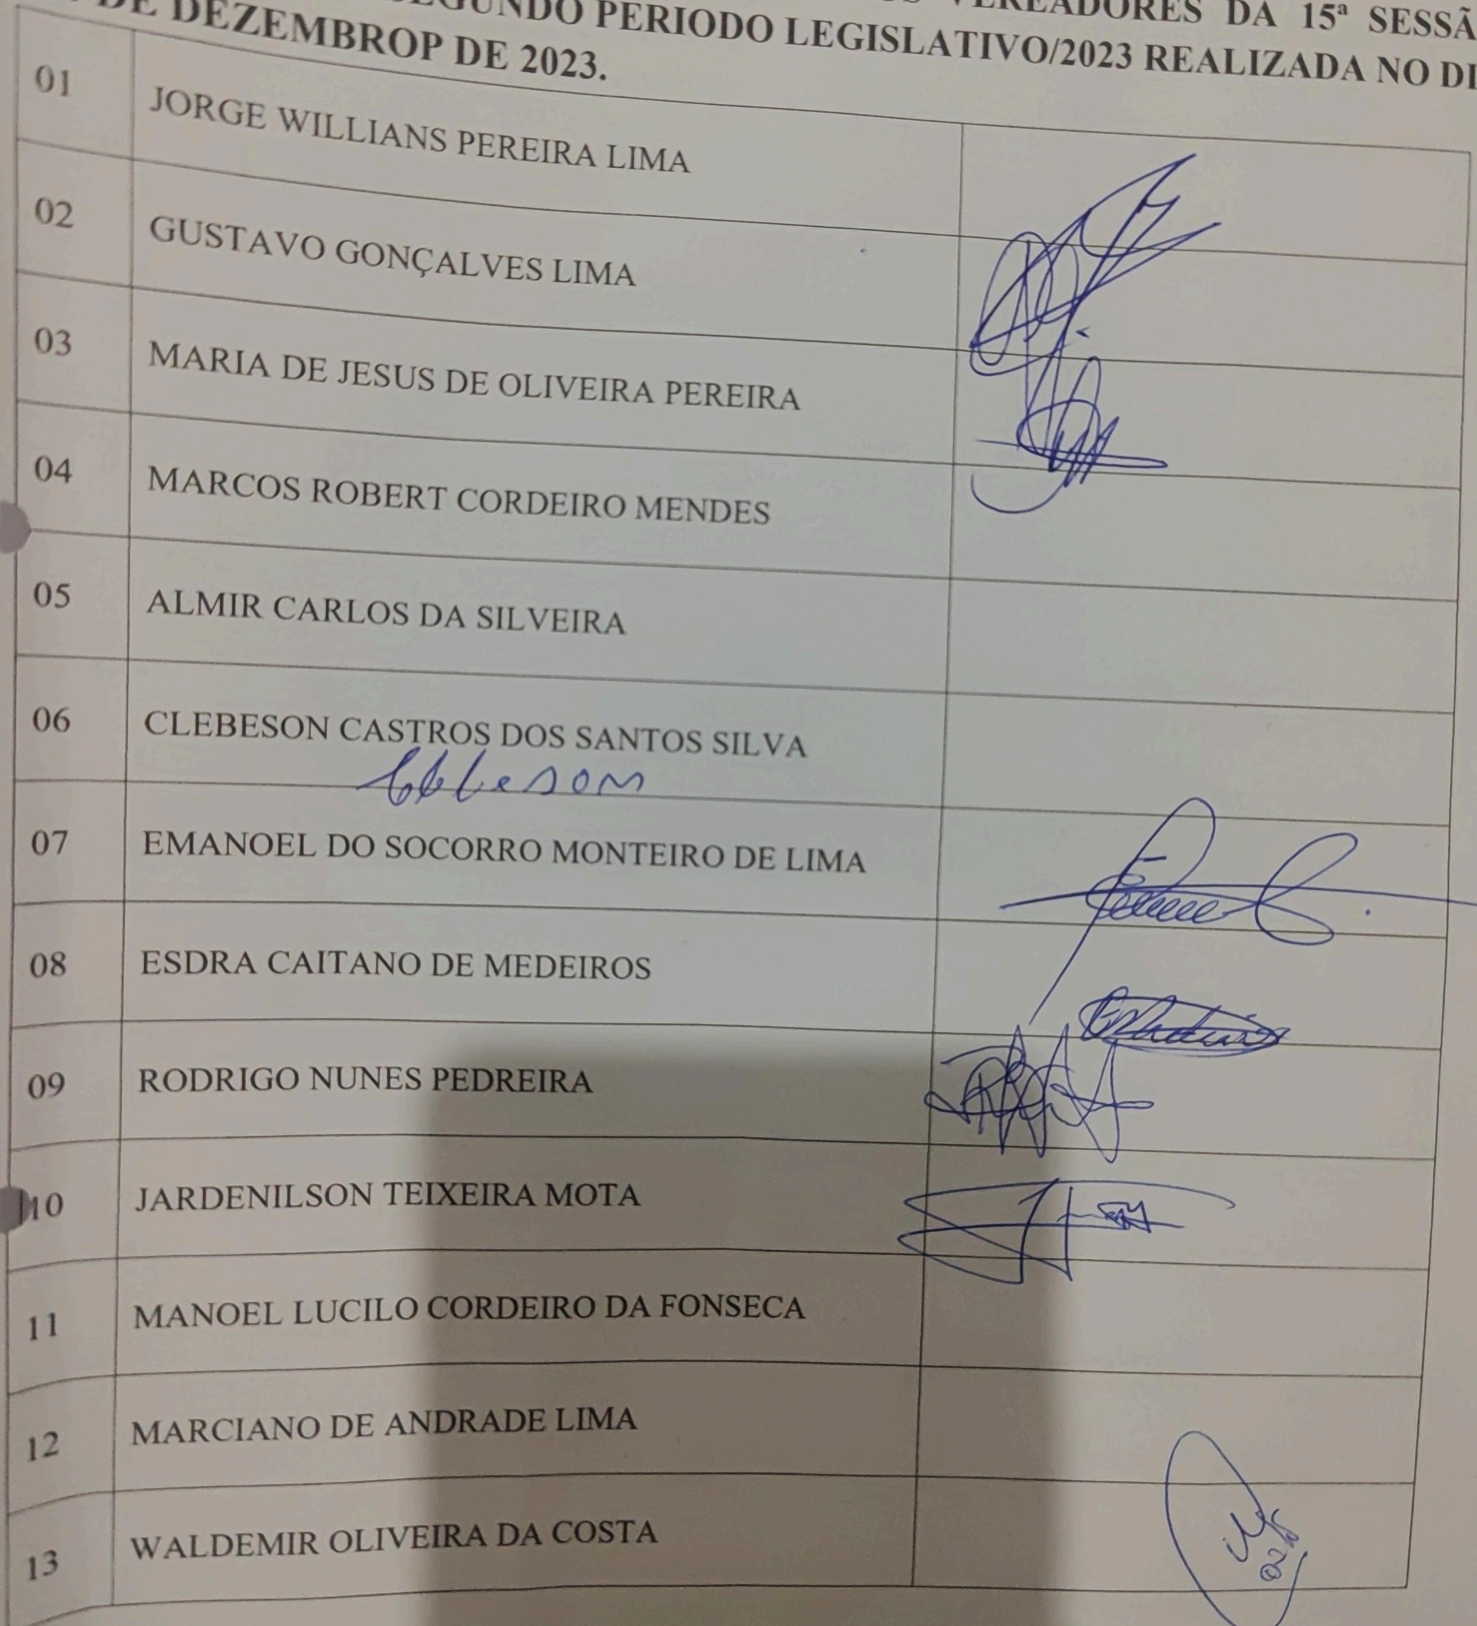 VEREADORES DA 15ª SESSÃ
SEGUNDO PERIODO LEGISLATIVO/2023 REALIZADA NO DI
DE DEZEMBROP DE 2023.
01 JORGE WILLIANS PEREIRA LIMA
02 GUSTAVO GONÇALVES LIMA
03 MARIA DE JESUS DE OLIVEIRA PEREIRA
04 MARCOS ROBERT CORDEIRO MENDES
05 ALMIR CARLOS DA SILVEIRA
06 CLEBESON CASTROS DOS SANTOS SILVA
07 EMANOEL DO SOCORRO MONTEIRO DE LIMA
08 ESDRA CAITANO DE MEDEIROS
09 RODRIGO NUNES PEDREIRA
10 JARDENILSON TEIXEIRA MOTA
11 MANOEL LUCILO CORDEIRO DA FONSECA
12 MARCIANO DE ANDRADE LIMA
13 WALDEMIR OLIVEIRA DA COSTA